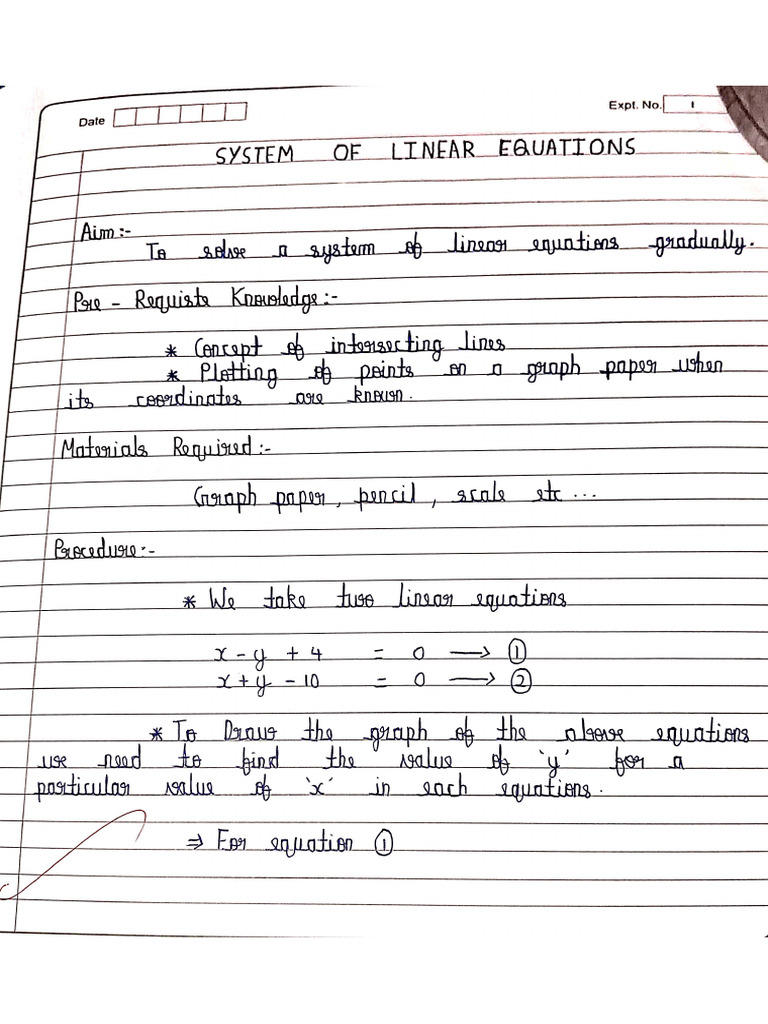 Date
Expt. No. 1
SYSTEM OF LINEAR EQUATIONS
Aim:-
To solve a system of linear equations gradually.
Pre - Requiste Knowledge:-
* Concept of intersecting lines
* Plotting of points on a graph paper when
its coordinates are known.
Materials Required:-
Graph paper, pencil, scale etc...
Procedure:-
* We take two linear equations
x - y + 4 = 0 → ①
x + y - 10 = 0 → ②
* To Draw the graph of the above equations
we need to find the value of 'y' for a
particular value of 'x' in each equations.
⇒ For equation ①